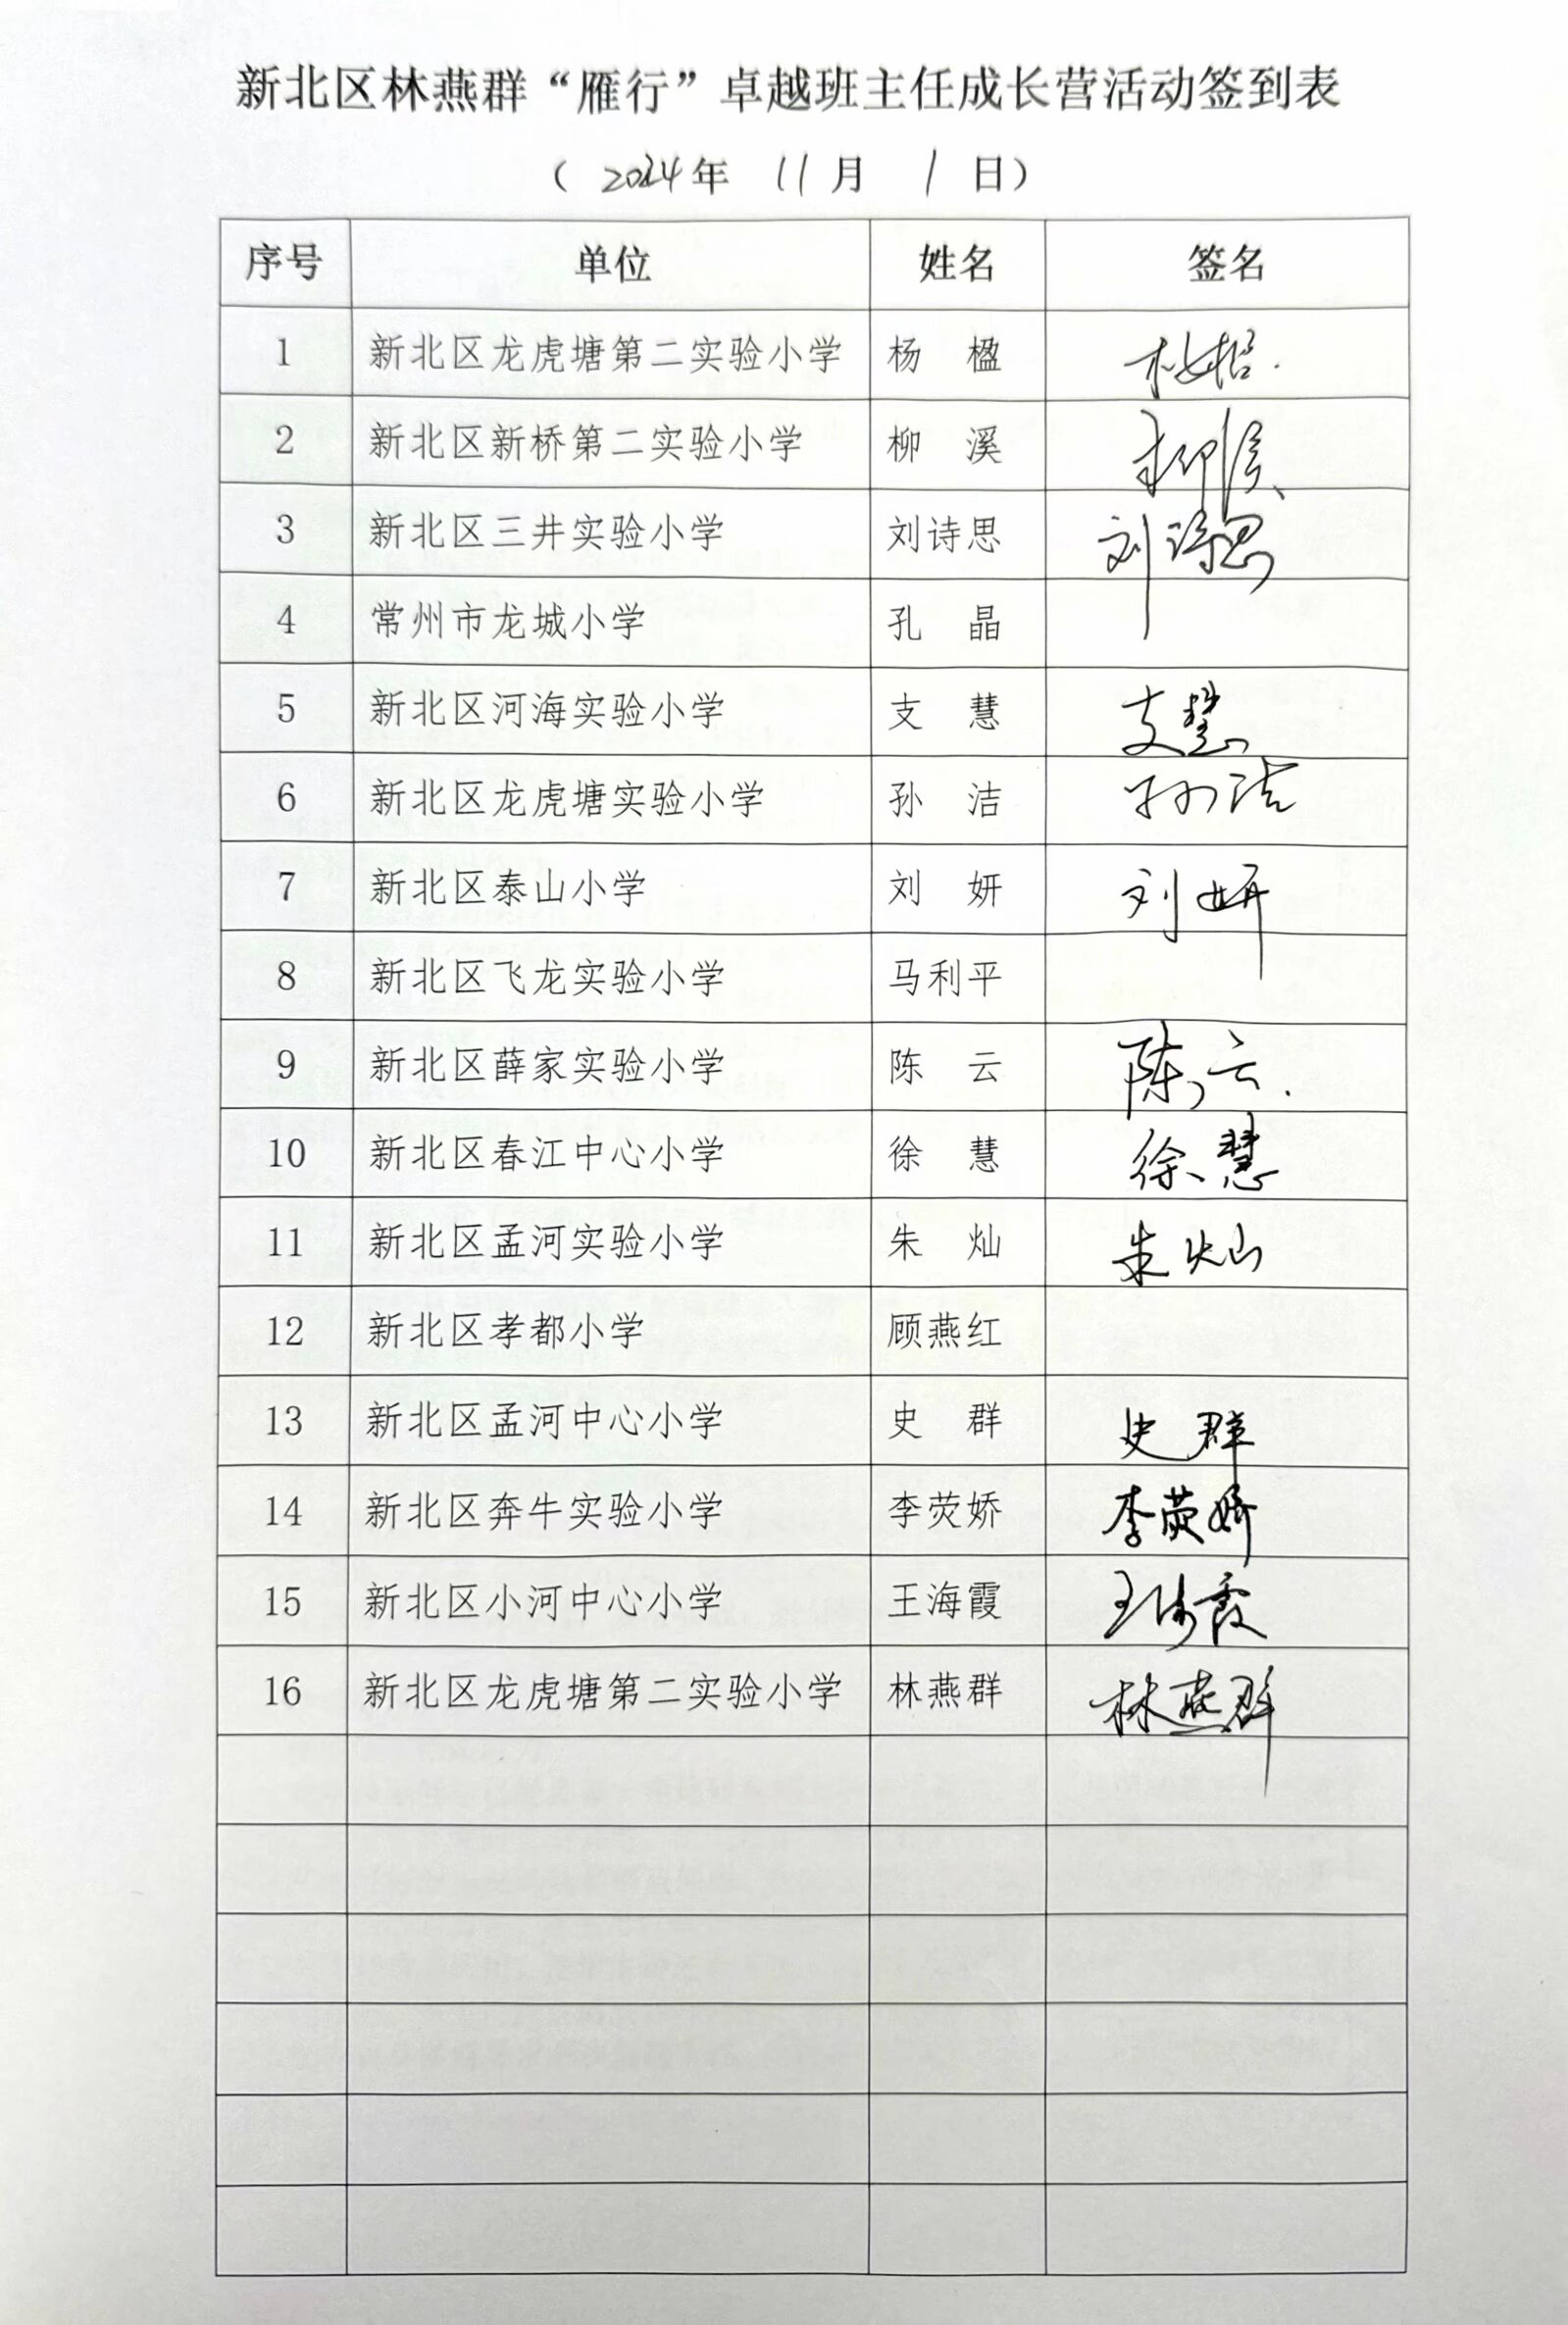 新北区林燕群“雁行”卓越班主任成长营活动签到表
（ 2024年 11月 1日）
序号 单位 姓名 签名
1 新北区龙虎塘第二实验小学 杨 楹
2 新北区新桥第二实验小学 柳 溪 柳溪
3 新北区三井实验小学 刘诗思 刘诗思
4 常州市龙城小学 孔 晶
5 新北区河海实验小学 支 慧 支慧
6 新北区龙虎塘实验小学 孙 洁 孙洁
7 新北区泰山小学 刘 妍 刘妍
8 新北区飞龙实验小学 马利平
9 新北区薛家实验小学 陈 云 陈云.
10 新北区春江中心小学 徐 慧 徐慧
11 新北区孟河实验小学 朱 灿 朱灿
12 新北区孝都小学 顾燕红
13 新北区孟河中心小学 史 群 史群
14 新北区奔牛实验小学 李荧娇 李荧娇
15 新北区小河中心小学 王海霞 王海霞
16 新北区龙虎塘第二实验小学 林燕群 林燕群